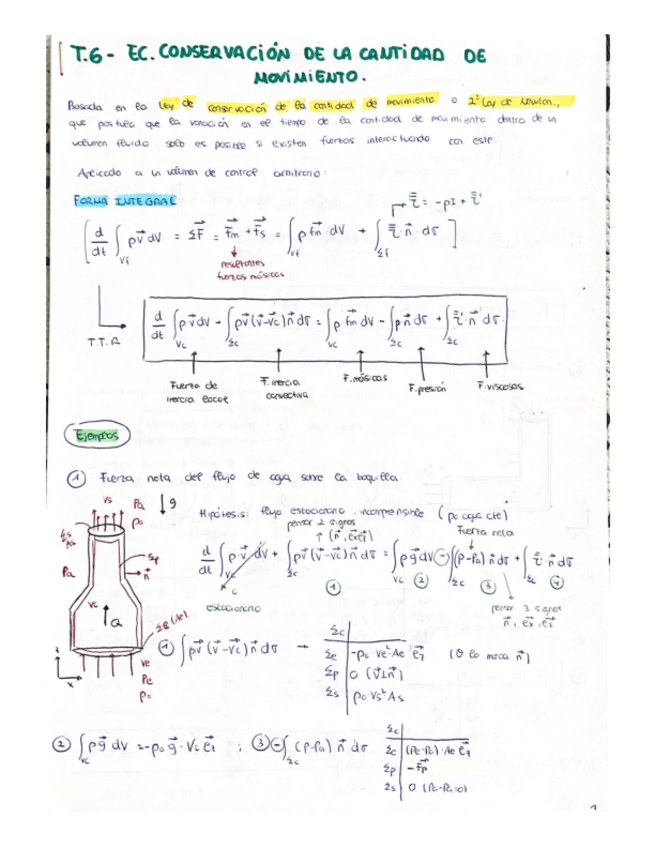 T.6 - EC. CONSERVACIÓN DE LA CANTIDAD DE
MOVIMIENTO.
Basada en la Ley de conservación de la cantidad de movimiento o 2ª Ley de Newton,
que postula que la variación en el tiempo de la cantidad de movimiento dentro de un
volumen fluido solo es posible si existen fuerzas interactuando con este.
Aplicado a un volumen de control arbitrario:
FORMA INTEGRAL
τ̿ = -pI + τ̿'
[ d/dt ∫_Vf ρv⃗ dV = ΣF⃗ = F⃗m + F⃗s = ∫_Vf ρ f⃗m · dV + ∫_Σf τ̿ · n⃗ · dσ ]
resultantes
fuerzas másicas
T.T.R
d/dt ∫_Vc ρv⃗ dV - ∫_Σc ρv⃗ (v⃗-v⃗c) n⃗ dσ = ∫_Vc ρ · f⃗m dV - ∫_Σc p n⃗ dσ + ∫_Σc τ̿' · n⃗ dσ.
Fuerza de inercia local
F. inercia convectiva
F. másicas
F. presión
F. viscosas
Ejemplos
① Fuerza neta del flujo de agua sobre la boquilla.
↓g
Hipótesis: flujo estacionario, incompresible (ρo agua cte)
pensar 2 signos
(n⃗, e⃗x e⃗z)
Fuerza neta
d/dt ∫ρ v⃗ dV + ∫_Σc ρv⃗ (v⃗-v⃗c) n⃗ dσ = ∫_Vc ρg⃗ dV - ∫_Σc (p-pa) n⃗ dσ + ∫ τ̿' n⃗ dσ
① ② ③ ④
estacionario
pensar 3 signos
n⃗, e⃗x, e⃗z
Vs Pa ρo
Σs
As
Σp
Pa
n⃗
Vc
a
z
x
Ve
Pe
ρo
① ∫ρv⃗ (v⃗-v⃗c) n⃗ dσ →
Σc
Σe | -ρo · Ve² · Ae e⃗z (⊖ lo marca n⃗)
Σp | 0 (v⃗⊥n⃗)
Σs | ρo · Vs² As
② ∫_Vc ρg⃗ dV = -ρo g⃗ · Vc e⃗z ; ③ -∫_Σc (p-pa) n⃗ dσ
Σc
Σe | (Pe-Pa) · Ae e⃗z
Σp | -F⃗p
Σs | 0 (Pa-Pa=0)
1